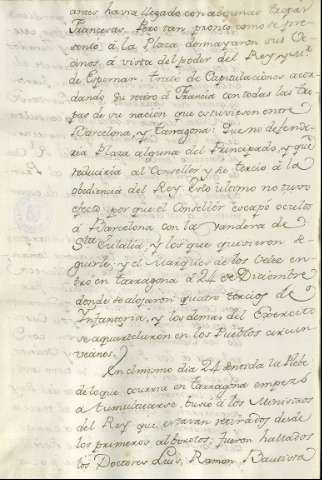 antes havia llegado con algunas tropas
Francesas. Pero tan pronto como se pre-
sentó à la Plaza desmayaron sus Ve-
cinos, à vista del poder del Rey, y Mr.
de Espernan trató de Capitulaciones acor-
dando su retiro à Francia con todas las tro-
pas de su nacion que estuviesen entre
Barcelona, y Tarragona: Que no defende-
ria Plaza alguna del Principado, y que
reduciria al Conseller y su tercio à la
obediencia del Rey. Esto ultimo no tuvo
efecto por que el Conseller escapó oculto
à Barcelona con la Vandera de
Sta. Eulalia, y los que quisieron se-
guirle, y el Marques de los Velez en-
tró en Tarragona à 24 de Diciembre
donde se alojaron quatro tercios de
Infanteria, y los demas del Exercito
se aquartelaron en los Pueblos circun-
vecinos.
En el mismo dia 24 sentida la Plebe
de lo que ocurria en Tarragona empezó
à tumultuarse, buscó à los Ministros
del Rey que estavan retirados desde
los primeros alborotos, fueron hallados
los Doctores Luis, Ramon, Bautista